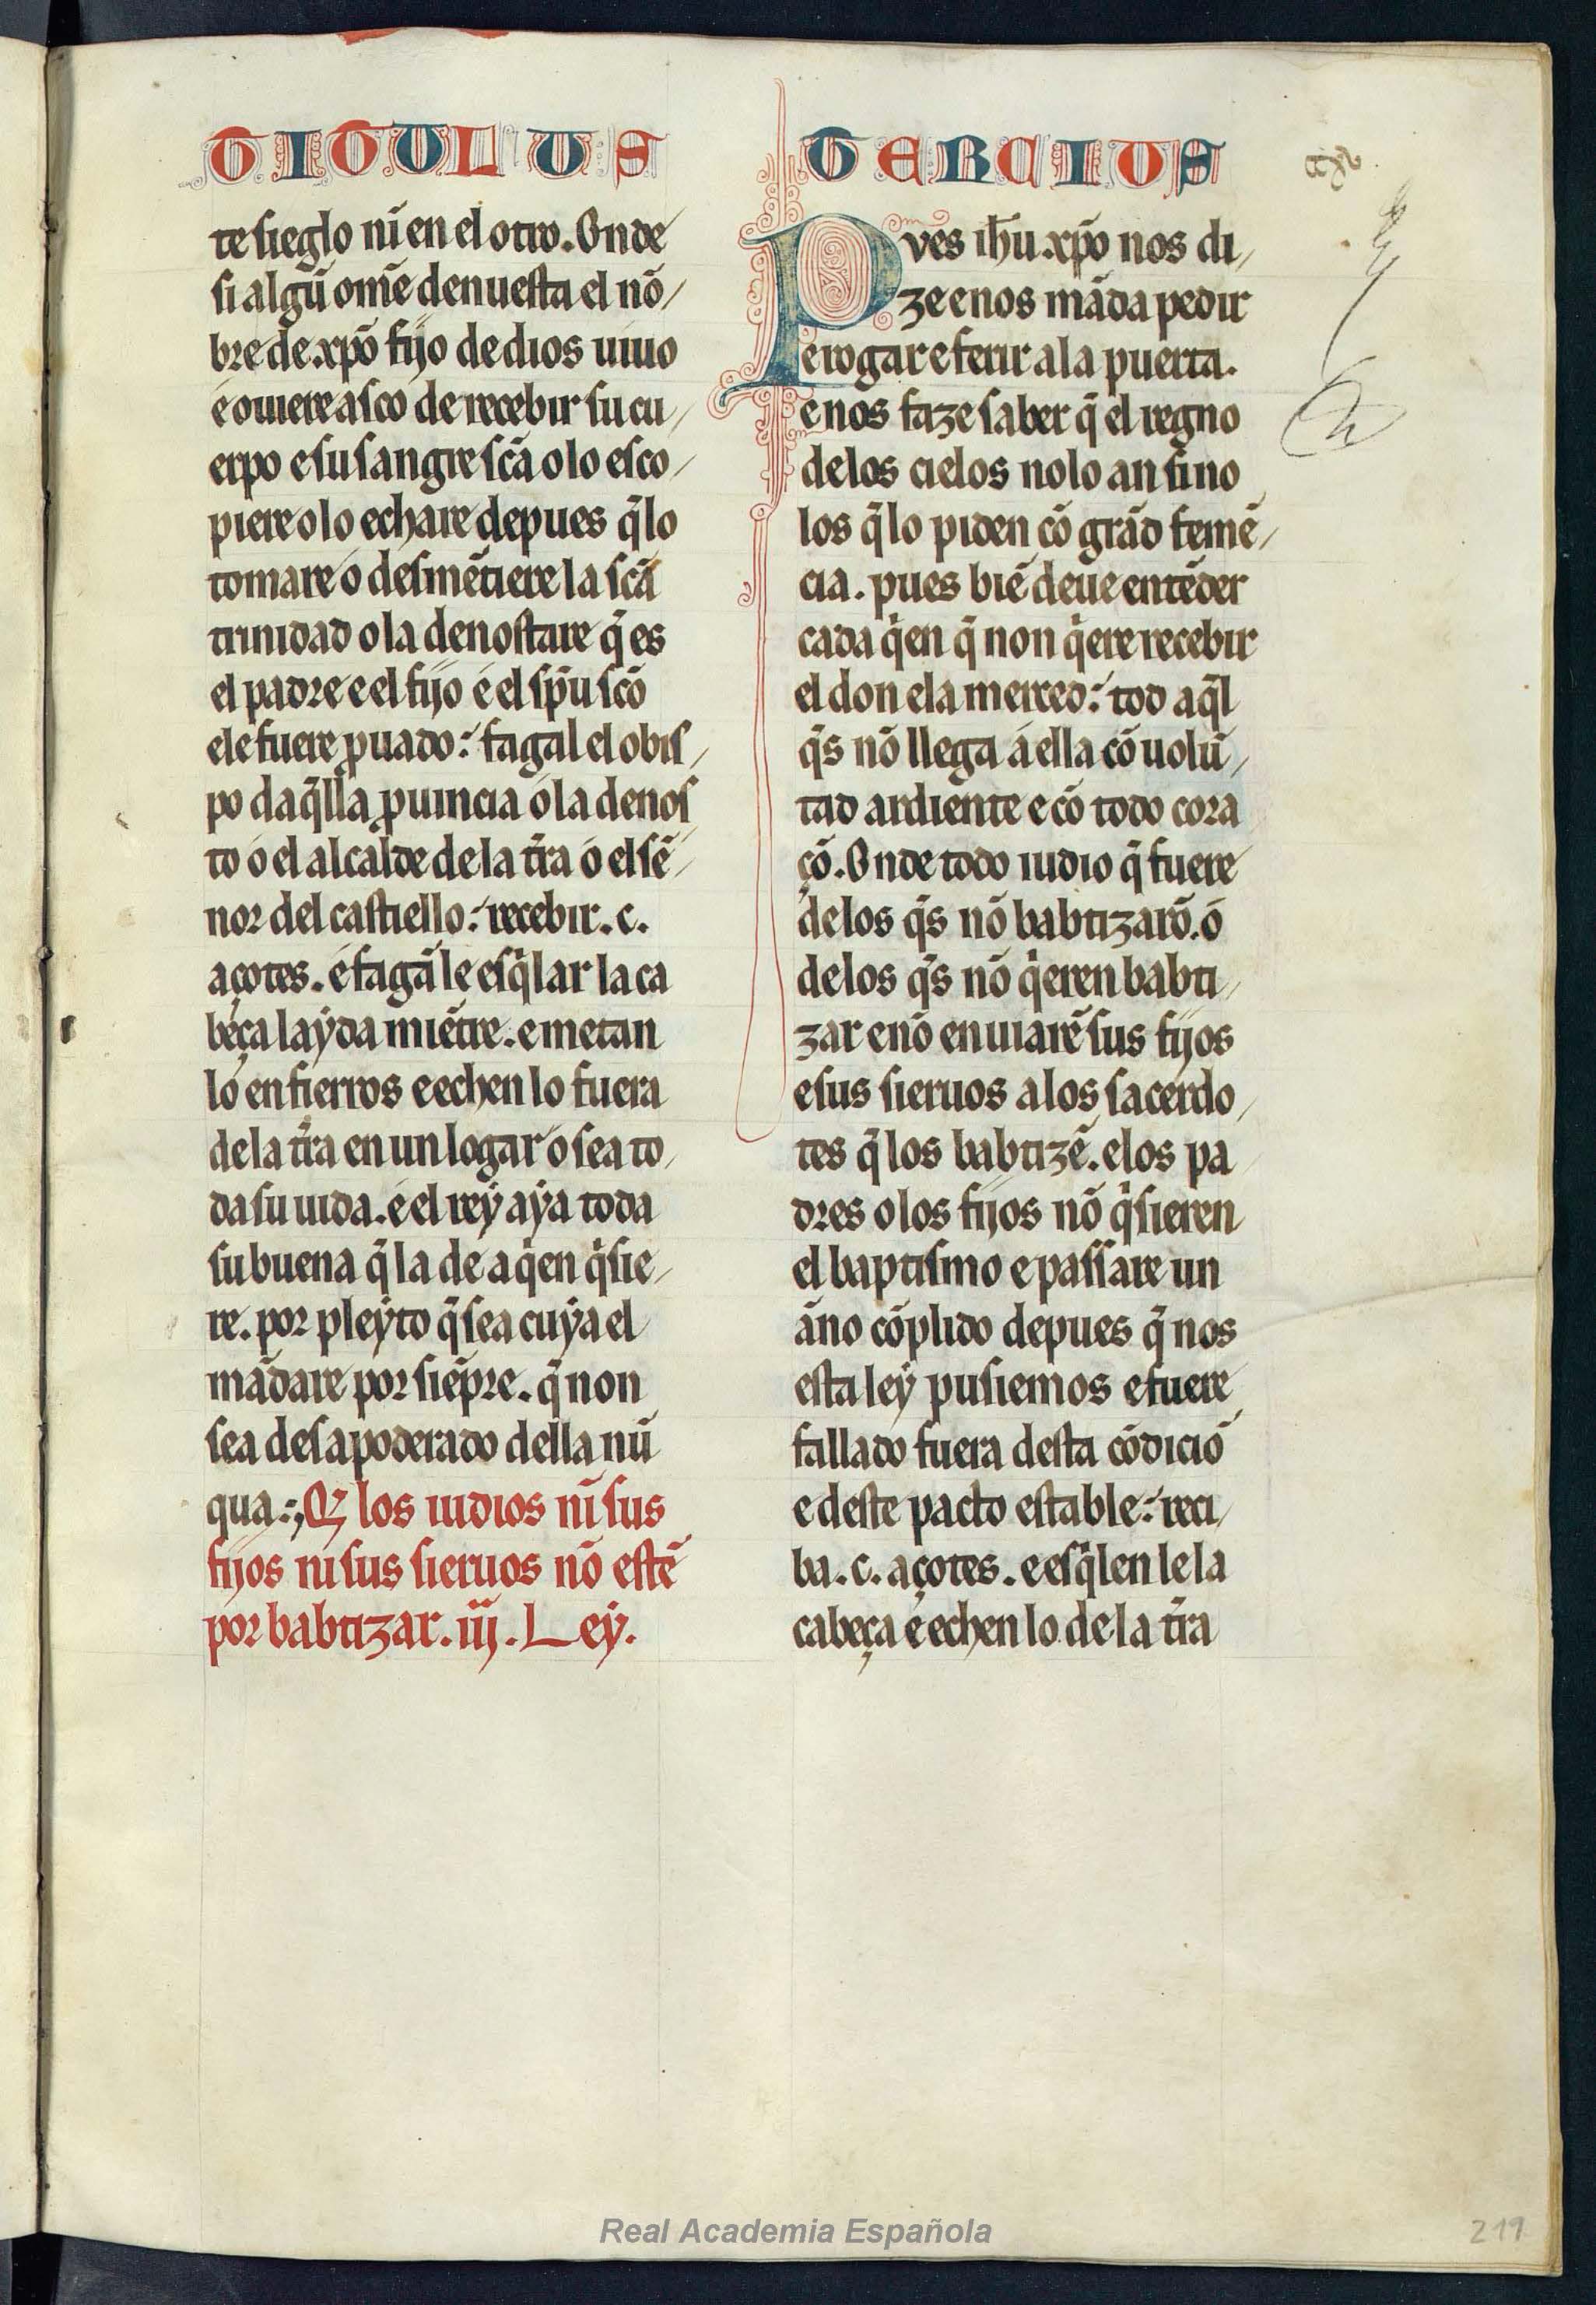 TITULUS
te sieglo nĩ en el otro. Onde
si algũ omẽ denuesta el nõ/
bre de xp̃o fijo de dios uiuo
e ouiere asco de recebir su cu/
erpo e su sangre sc̃a o lo esco/
piere o lo echare depues q̃ lo
tomare o desmẽtiere la sc̃a
trinidad o la denostare q̃ es
el padre e el fijo e el sp̃u sc̃o
e le fuere ꝓuado: fagal el obis/
po daq̃lla ꝓuincia o la denos
to o el alcalde de la tr̃a o el sẽ/
nor del castiello: recebir .c.
açotes. e fagã le esq̃lar la ca
beça laẏda miẽtre. e metan
lo en fierros e echen lo fuera
de la tr̃a en un logar o sea to/
da su uida. e el reẏ aẏa toda
su buena q̃ la de a qien q̃sie/
re. por pleẏto q̃ sea cuẏa el
mãdare por siẽpre. q̃ non
sea desapoderado della nũ
qua. Q̃ los iudios nĩ sus
fijos ni sus sieruos nõ estẽ
por babtizar. iij. Leẏ.
TERCIUS
PVes ih̃u xp̃o nos di/
ze e nos mãda pedir
e rogar e ferir a la puerta.
e nos faze saber q̃ el regno
de los cielos no lo an sino
los q̃ lo piden cõ grãd femẽ/
cia. pues biẽ deue entẽder
cada q̃en q̃ non q̃ere recebir
el don e la merced: tod aq̃l
q̃s nõ llega a ella cõ uolũ/
tad ardiente e cõ todo cora
çõ. Onde todo iudio q̃ fuere
de los q̃s nõ babtizarõ. o
de los q̃s nõ q̃eren babti/
zar e nõ enuiarẽ sus fijos
e sus sieruos a los sacerdo/
tes q̃ los babtizẽ. e los pa
dres o los fijos nõ q̃sieren
el baptismo e passare un
ãno cõplido depues q̃ nos
esta leẏ pusiemos e fuere
fallado fuera desta cõdiciõ
e deste pacto estable: reci/
ba .c. açotes. e esq̃len le la
cabeça e echen lo de la tr̃a
Real Academia Española
219